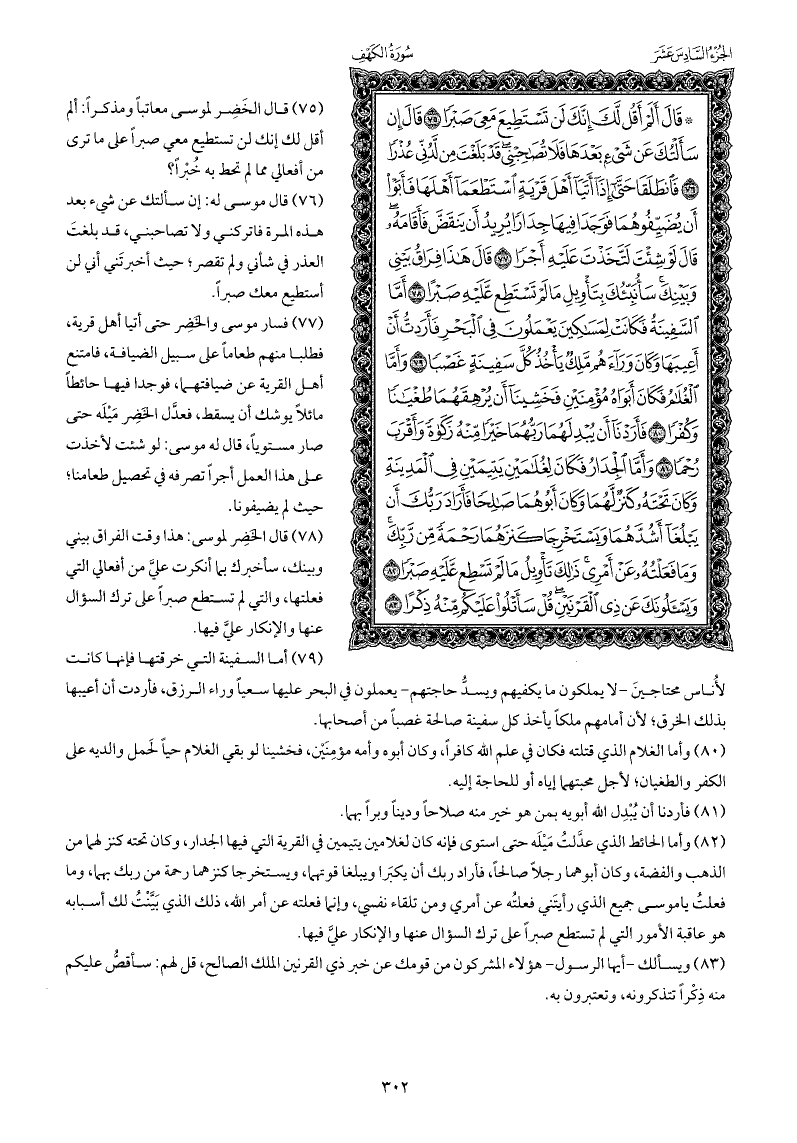 الجزء السادس عشر
سورة الكهف
۞ قَالَ أَلَمْ أَقُل لَّكَ إِنَّكَ لَن تَسْتَطِيعَ مَعِيَ صَبْرًا ٧٥ قَالَ إِن
سَأَلْتُكَ عَن شَيْءٍ بَعْدَهَا فَلَا تُصَاحِبْنِي ۖ قَدْ بَلَغْتَ مِن لَّدُنِّي عُذْرًا
٧٦ فَانطَلَقَا حَتَّىٰ إِذَا أَتَيَا أَهْلَ قَرْيَةٍ اسْتَطْعَمَا أَهْلَهَا فَأَبَوْا
أَن يُضَيِّفُوهُمَا فَوَجَدَا فِيهَا جِدَارًا يُرِيدُ أَن يَنقَضَّ فَأَقَامَهُ ۖ
قَالَ لَوْ شِئْتَ لَتَّخَذْتَ عَلَيْهِ أَجْرًا ٧٧ قَالَ هَٰذَا فِرَاقُ بَيْنِي
وَبَيْنِكَ ۚ سَأُنَبِّئُكَ بِتَأْوِيلِ مَا لَمْ تَسْتَطِع عَّلَيْهِ صَبْرًا ٧٨ أَمَّا
السَّفِينَةُ فَكَانَتْ لِمَسَاكِينَ يَعْمَلُونَ فِي الْبَحْرِ فَأَرَدتُّ أَنْ
أَعِيبَهَا وَكَانَ وَرَاءَهُم مَّلِكٌ يَأْخُذُ كُلَّ سَفِينَةٍ غَصْبًا ٧٩ وَأَمَّا
الْغُلَامُ فَكَانَ أَبَوَاهُ مُؤْمِنَيْنِ فَخَشِينَا أَن يُرْهِقَهُمَا طُغْيَانًا
وَكُفْرًا ٨٠ فَأَرَدْنَا أَن يُبْدِلَهُمَا رَبُّهُمَا خَيْرًا مِّنْهُ زَكَاةً وَأَقْرَبَ
رُحْمًا ٨١ وَأَمَّا الْجِدَارُ فَكَانَ لِغُلَامَيْنِ يَتِيمَيْنِ فِي الْمَدِينَةِ
وَكَانَ تَحْتَهُ كَنزٌ لَّهُمَا وَكَانَ أَبُوهُمَا صَالِحًا فَأَرَادَ رَبُّكَ أَن
يَبْلُغَا أَشُدَّهُمَا وَيَسْتَخْرِجَا كَنزَهُمَا رَحْمَةً مِّن رَّبِّكَ ۚ
وَمَا فَعَلْتُهُ عَنْ أَمْرِي ۚ ذَٰلِكَ تَأْوِيلُ مَا لَمْ تَسْطِع عَّلَيْهِ صَبْرًا ٨٢
وَيَسْأَلُونَكَ عَن ذِي الْقَرْنَيْنِ ۖ قُلْ سَأَتْلُو عَلَيْكُم مِّنْهُ ذِكْرًا ٨٣
(٧٥) قال الخَضِر لموسى معاتباً ومذكراً: ألم
أقل لك إنك لن تستطيع معي صبراً على ما ترى
من أفعالي مما لم تحط به خُبْراً؟
(٧٦) قال موسى له: إن سألتك عن شيء بعد
هذه المرة فاتركني ولا تصاحبني، قد بلغتَ
العذر في شأني ولم تقصر؛ حيث أخبرتَني أني لن
أستطيع معك صبراً.
(٧٧) فسار موسى والخَضِر حتى أتيا أهل قرية،
فطلبا منهم طعاماً على سبيل الضيافة، فامتنع
أهل القرية عن ضيافتهما، فوجدا فيها حائطاً
مائلاً يوشك أن يسقط، فعدَّل الخَضِر مَيْلَه حتى
صار مستوياً، قال له موسى: لو شئت لأخذت
على هذا العمل أجراً تصرفه في تحصيل طعامنا؛
حيث لم يضيفونا.
(٧٨) قال الخَضِر لموسى: هذا وقت الفراق بيني
وبينك، سأخبرك بما أنكرت عليَّ من أفعالي التي
فعلتها، والتي لم تستطع صبراً على ترك السؤال
عنها والإنكار عليَّ فيها.
(٧٩) أما السفينة التي خرقتها فإنها كانت
لأُناس محتاجينَ -لا يملكون ما يكفيهم ويسدُّ حاجتهم- يعملون في البحر عليها سعياً وراء الرزق، فأردت أن أعيبها
بذلك الخرق؛ لأن أمامهم ملكاً يأخذ كل سفينة صالحة غصباً من أصحابها.
(٨٠) وأما الغلام الذي قتلته فكان في علم الله كافراً، وكان أبوه وأمه مؤمِنَيْن، فخشينا لو بقي الغلام حياً لَحمل والديه على
الكفر والطغيان؛ لأجل محبتهما إياه أو للحاجة إليه.
(٨١) فأردنا أن يُبْدِل الله أبويه بمن هو خير منه صلاحاً وديناً وبراً بهما.
(٨٢) وأما الحائط الذي عدَّلتُ مَيْلَه حتى استوى فإنه كان لغلامين يتيمين في القرية التي فيها الجدار، وكان تحته كنز لهما من
الذهب والفضة، وكان أبوهما رجلاً صالحاً، فأراد ربك أن يكبَرا ويبلغا قوتهما، ويستخرجا كنزهما رحمة من ربك بهما، وما
فعلتُ ياموسى جميع الذي رأيتَني فعلتُه عن أمري ومن تلقاء نفسي، وإنما فعلته عن أمر الله، ذلك الذي بَيَّنْتُ لك أسبابه
هو عاقبة الأمور التي لم تستطع صبراً على ترك السؤال عنها والإنكار عليَّ فيها.
(٨٣) ويسألك -أيها الرسول- هؤلاء المشركون من قومك عن خبر ذي القرنين الملك الصالح، قل لهم: سأقصُّ عليكم
منه ذِكْراً تتذكرونه، وتعتبرون به.
٣٠٢